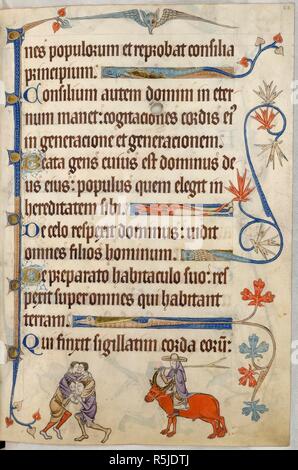 nes populorum et reprobat consilia
principium.
Consilium autem domini in eter
num manet: cogitaciones cordis eiꝰ
in generacione et generacionem.
Beata gens cuius est dominus de
us eius: populus quem elegit in
hereditatem sibi.
De celo respexit dominus: uidit
omnes filios hominum.
De preparato habitaculo suo: res
pexit super omnes qui habitant
terram.
Qui finxit sigillatim corda eorū:
alamy